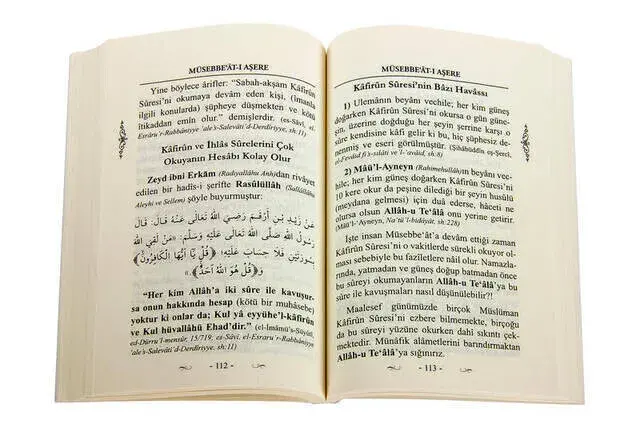 MÜSEBBE'ÂT-I AŞERE
Yine böylece ârifler: "Sabah-akşam Kâfirûn
Sûresi'ni okumaya devam eden kişi, (îmanla
ilgili konularda) şüpheye düşmekten ve kötü
îtikaddan emin olur." demişlerdir. (es-Sâvî, el-
Esrâru'r-Rabbâniyye 'ale's-Salevâti'd-Derdîriyye, sh:11)
Kâfirûn ve İhlâs Sûrelerini Çok
Okuyanın Hesâbı Kolay Olur
Zeyd ibni Erkâm (Radıyallâhu Anh)dan rivâyet
edilen bir hadîs-i şerîfte Rasûlüllâh (Sallâllâhu
Aleyhi ve Sellem) şöyle buyurmuştur:
عَنْ زَيْدِ بْنِ أَرْقَمَ رَضِيَ اللّٰهُ تَعَالَى عَنْهُ قَالَ: قَالَ
رَسُولُ اللّٰهِ صَلَّى اللّٰهُ تَعَالَى عَلَيْهِ وَسَلَّمَ: «مَنْ لَقِيَ اللّٰهَ
بِسُورَتَيْنِ فَلَا حِسَابَ عَلَيْهِ: ﴿قُلْ يَا أَيُّهَا الْكَافِرُونَ﴾
وَ ﴿قُلْ هُوَ اللّٰهُ أَحَدٌ﴾»
"Her kim Allâh'a iki sûre ile kavuşur-
sa onun hakkında hesap (kötü bir muhasebe)
yoktur ki onlar da; Kul yâ eyyühe'l-kâfirûn
ve Kul hüvallâhü Ehad'dir." (el-İmâmü's-Süyûtî,
ed-Dürru'l-mensûr, 15/719; es-Sâvî, el-Esraru'r-Rabbâniyye
'ale's-Salevâti'd-Derdîriyye, sh:11)
- 112 -
MÜSEBBE'ÂT-I AŞERE
Kâfirûn Sûresi'nin Bâzı Havâssı
1) Ulemânın beyânı vechile; her kim güneş
doğarken Kâfirûn Sûresi'ni okursa o gün güne-
şin, üzerine doğduğu her şeyin şerrine karşı o
sûre kendisine kâfi gelir ki bu, hiç şüphesiz de-
nenmiş ve eseri görülmüştür. (Şihâbüddîn eş-Şercî,
el-Fevâid fi's-salâti ve'l-avâid, sh:8)
2) Mâü'l-Ayneyn (Rahimehullâh)ın beyânı vec-
hile; her kim güneş doğarken Kâfirûn Sûresi'ni
10 kere okur da peşine dilediği bir şeyin husûlü
(meydana gelmesi) için duâ ederse, hâceti ne
olursa olsun Allâh-u Te'âlâ onu yerine getirir.
(Mâü'l-Ayneyn, Na'tü'l-bidâyât, sh:228)
İşte insan Müsebbe'ât'a devâm ettiği zaman
Kâfirûn Sûresi'ni o vakitlerde sürekli okuyor ol-
ması sebebiyle bu fazîletlere nâil olur. Namazla-
rında, yatmadan ve güneş doğup batmadan önce
bu sûreyi okumayanların Allah-u Te'âlâ'ya bu
sûre ile kavuşmaları nasıl düşünülebilir?!
Maalesef günümüzde birçok Müslüman
Kâfirûn Sûresi'ni ezbere bilmemekte, birçoğu
da bu sûreyi yüzüne okurken dahi sıkıntı çek-
mektedir. Münâfık alâmetlerini barındırmaktan
Allah-u Te'âlâ'ya sığınırız.
- 113 -